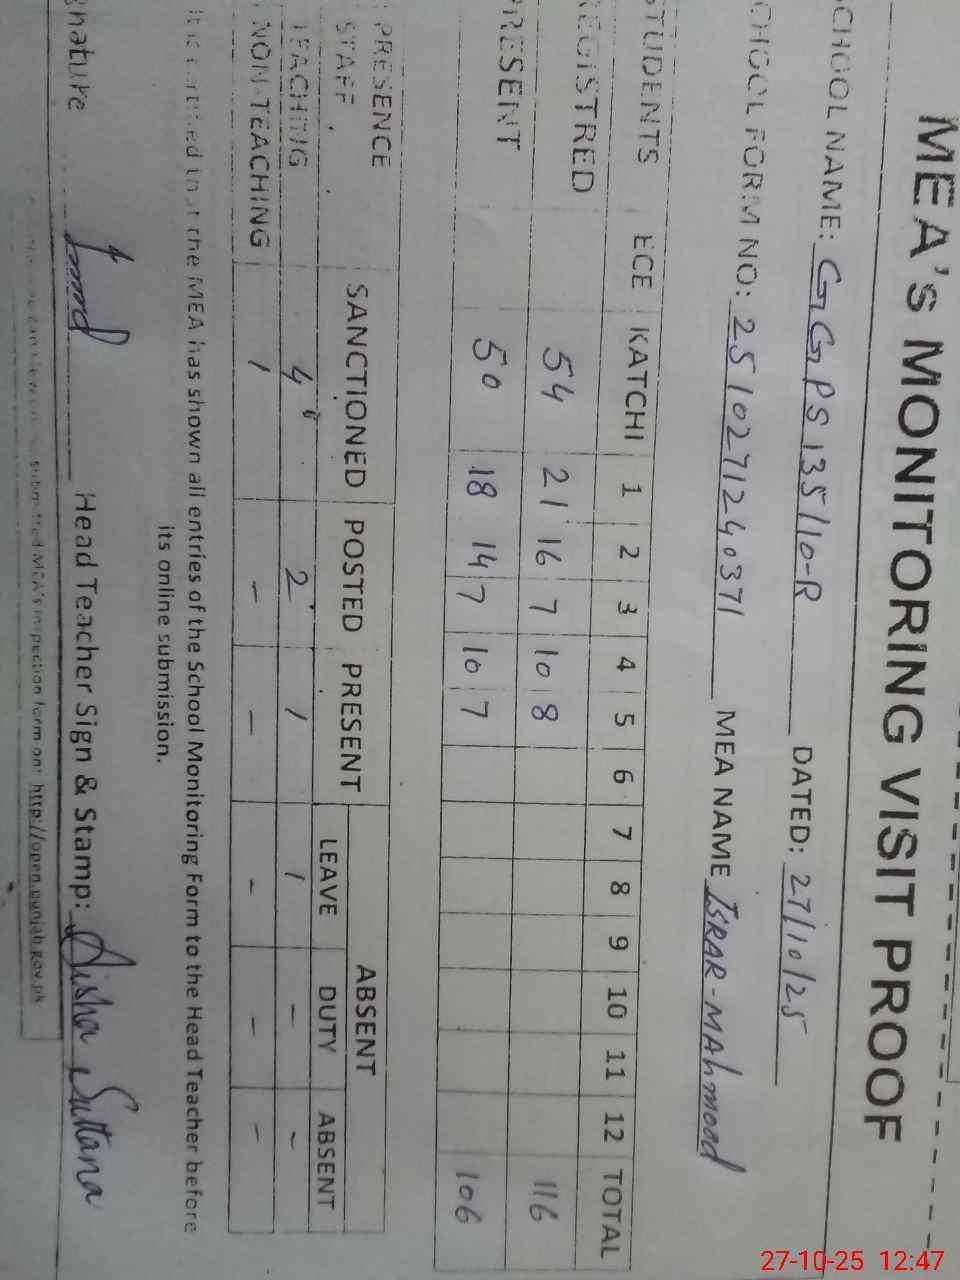 MEA's MONITORING VISIT PROOF
SCHOOL NAME: GGPS 135/10-R DATED: 27/10/25
SCHOOL FORM NO: 2510271240371 MEA NAME ISRAR-MAhmood
STUDENTS ECE KATCHI 1 2 3 4 5 6 7 8 9 10 11 12 TOTAL
REGISTRED 54 21 16 7 10 8 116
PRESENT 50 18 14 7 10 7 106
PRESENCE ABSENT
STAFF SANCTIONED POSTED PRESENT LEAVE DUTY ABSENT
TEACHING 4 2 1 1 - -
NON-TEACHING 1 - - - - -
It is certified that the MEA has shown all entries of the School Monitoring Form to the Head Teacher before
its online submission.
gnature Head Teacher Sign & Stamp: Aisha Sultana
submitted MEA's inspection form on: http://open.punjab.gov.pk
27-10-25 12:47